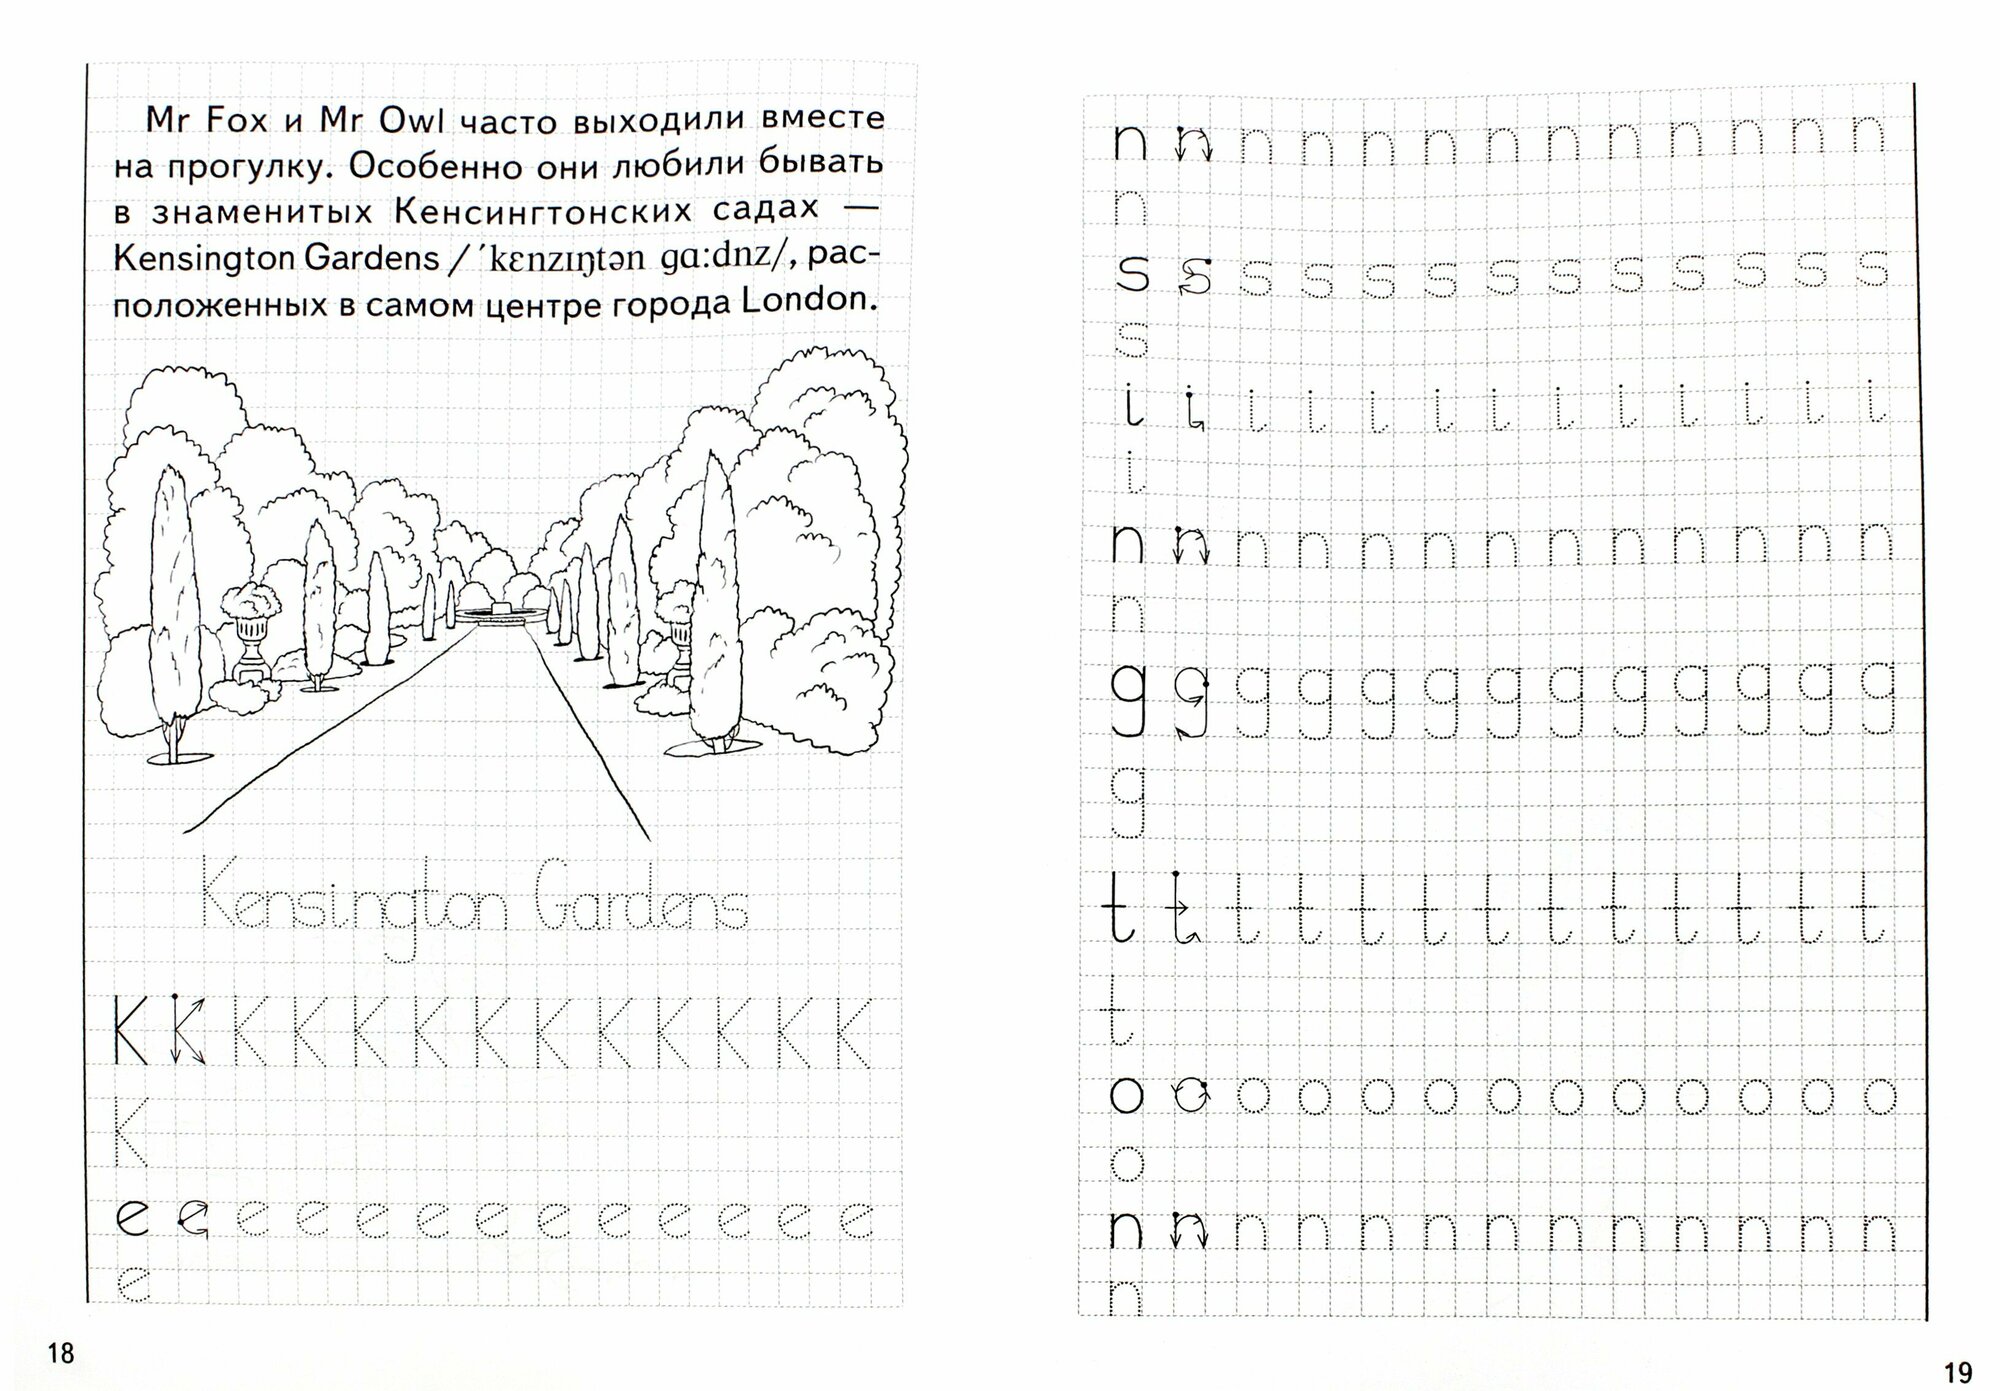 Mr Fox и Mr Owl часто выходили вместе
на прогулку. Особенно они любили бывать
в знаменитых Кенсингтонских садах —
Kensington Gardens /ˊkɛnzɪŋtən gɑ:dnz/, рас-
положенных в самом центре города London.
Kensington Gardens
K K K K K K K K K K K K K
K
e e e e e e e e e e e e e
e
18
n n n n n n n n n n n n n
n
s s s s s s s s s s s s s
s
i i i i i i i i i i i i i
i
n n n n n n n n n n n n n
n
g g g g g g g g g g g g g
g
t t t t t t t t t t t t t
t
o o o o o o o o o o o o o
o
n n n n n n n n n n n n n
n
19